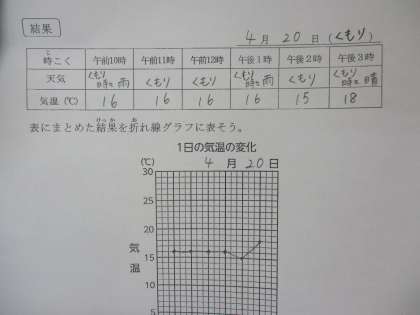 結果
4月20日(くもり)
時こく 午前10時 午前11時 午前12時 午後1時 午後2時 午後3時
天気 くもり時々雨 くもり くもり くもり時々雨 くもり くもり時々晴
気温(℃) 16 16 16 16 15 18
表にまとめた結果を折れ線グラフに表そう。
1日の気温の変化
(℃) 4月20日
30
25
20
気温
15
10
5